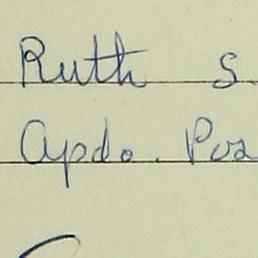 Ruth S.
Apdo. Pos